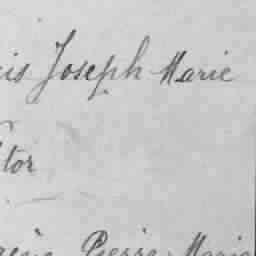 is Joseph Marie
tor
Pierre Marie